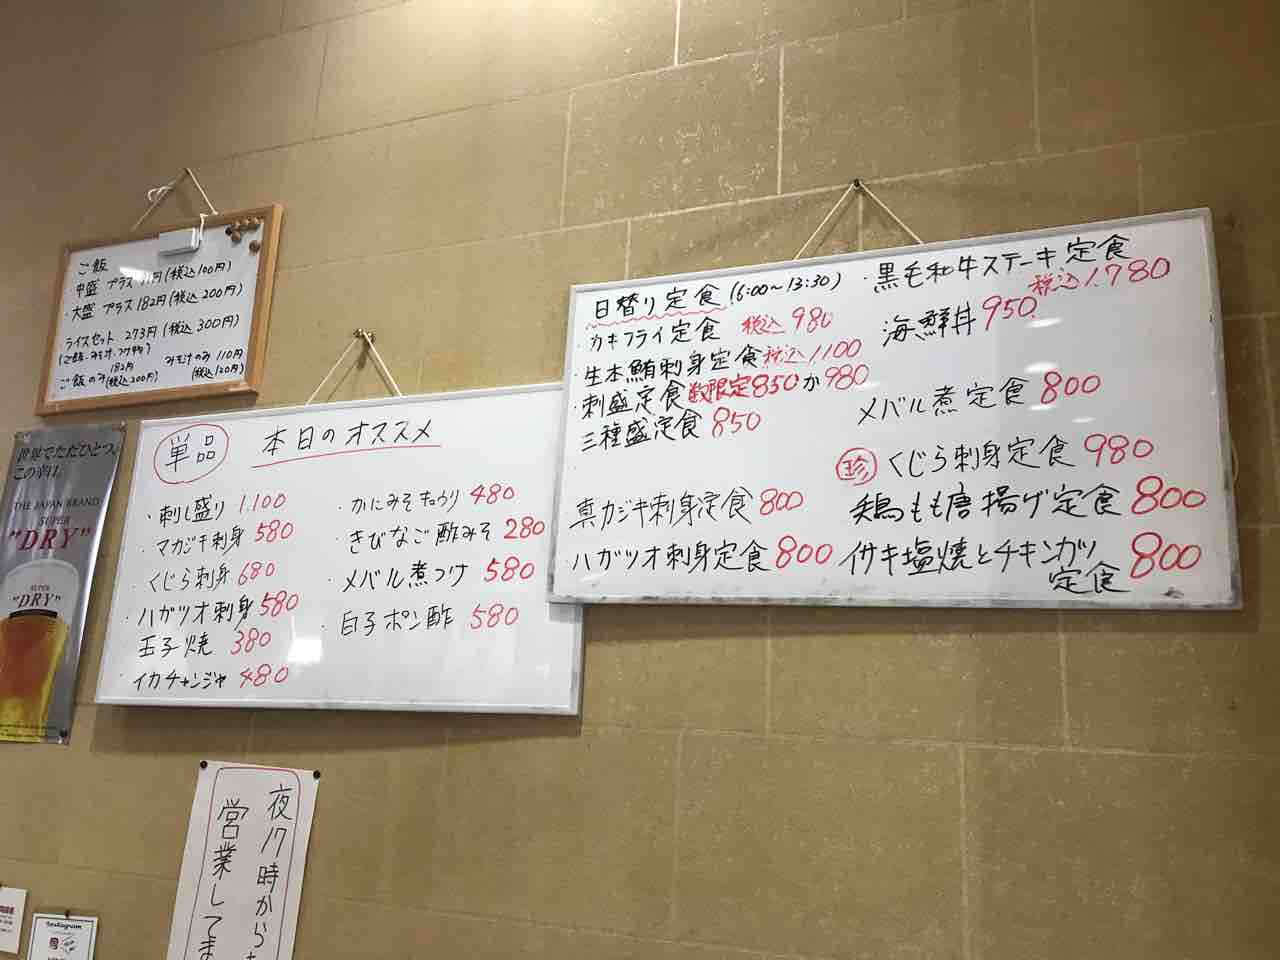 ご飯
中盛 プラス 91円(税込100円)
・大盛 プラス 182円(税込200円)
ライスセット 273円(税込300円)
(ご飯・みそ汁・つけ物)
みそ汁のみ 110円
(税込120円)
ご飯のみ 182円
(税込200円)
世界でただひとつ。
この辛口。
THE JAPAN BRAND
SUPER
"DRY"
SUPER
"DRY"
単品
本日のオススメ
・刺し盛り 1.100
・マカジキ刺身 580
・くじら刺身 680
・ハガツオ刺身 580
玉子焼 380
・イカチャンジャ 480
・かにみそキュウリ 480
・きびなご酢みそ 280
・メバル煮つけ 580
・白子ポン酢 580
日替り定食 (6:00〜13:30)
・カキフライ定食 税込 980
・生本鮪刺身定食 税込1100
・刺盛定食 数限定850か980
・三種盛定食 850
真カジキ刺身定食 800
ハガツオ刺身定食 800
・黒毛和牛ステーキ定食
税込1.780
海鮮丼 950.
メバル煮定食 800
珍 くじら刺身定食 980
鶏もも唐揚げ定食 800
イサキ塩焼とチキンカツ
定食 800
夜17時から
営業してま
Instagram